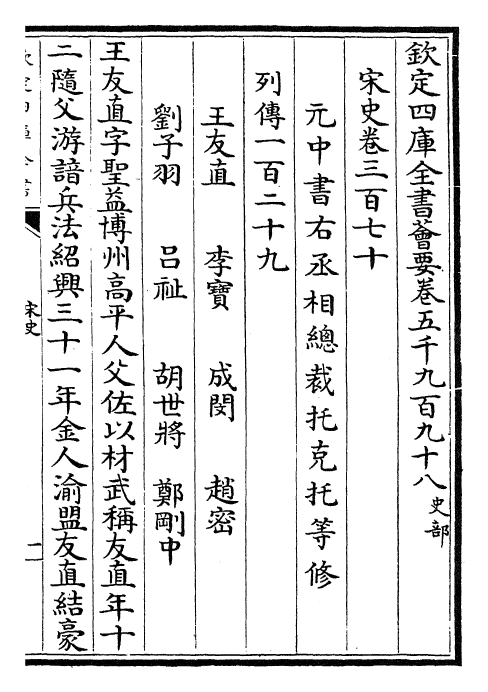 欽定四庫全書薈要卷五千九百九十八史部
宋史卷三百七十
元中書右丞相總裁托克托等修
列傳一百二十九
王友直 李寶 成閔 趙密
劉子羽 呂祉 胡世將 鄭剛中
王友直字聖益博州高平人父佐以材武稱友直年十
二隨父游諳兵法紹興三十一年金人渝盟友直結豪
宋史